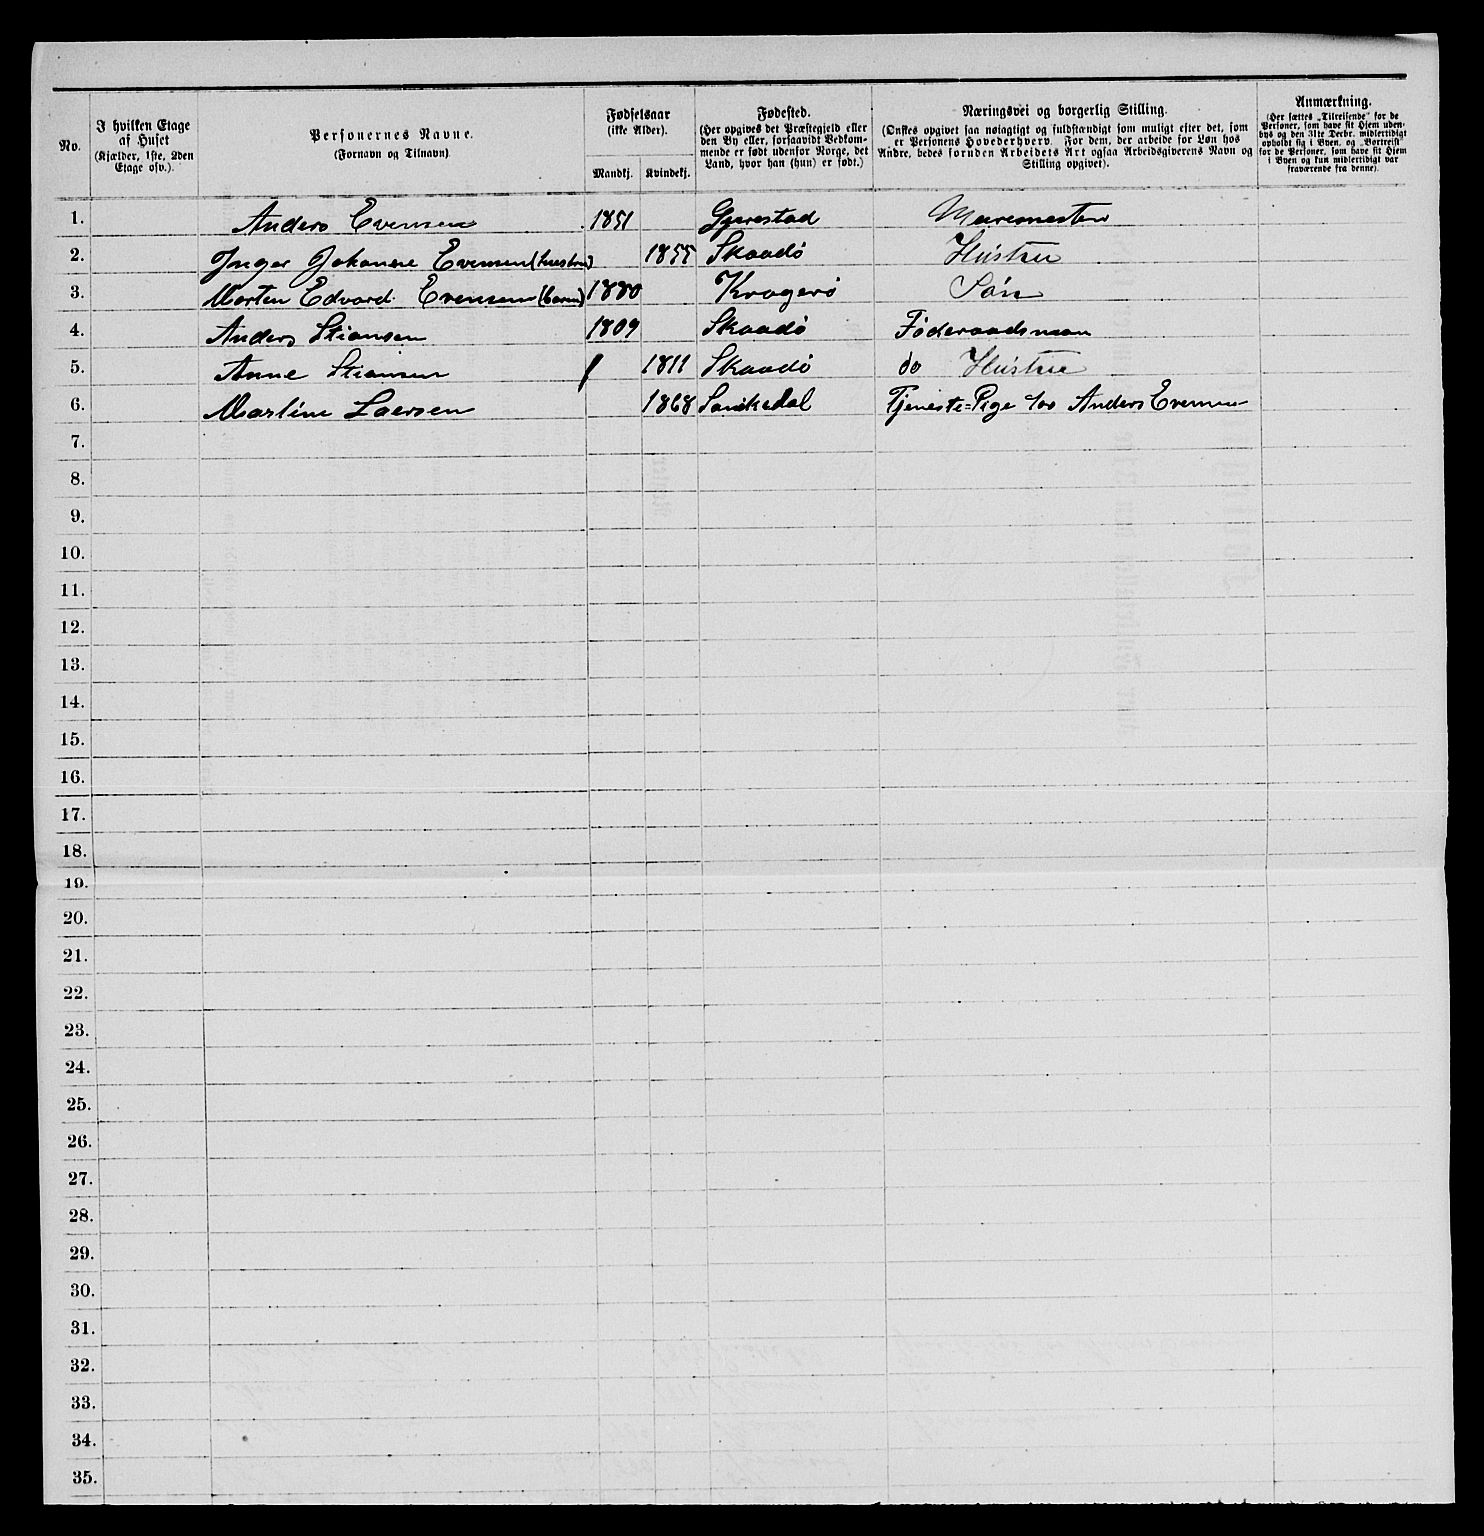 No.
I hvilken Etage
af Huset
(Kjælder, 1ste, 2den
Etage osv.).
Personernes Navne.
(Fornavn og Tilnavn)
Fødselsaar
(ikke Alder).
Mandkj. Kvindekj.
Fødested.
(Her opgives det Præstegjeld eller
den By eller, forsaavidt Vedkom-
mende er født udenfor Norge, det
Land, hvor han (hun) er født.)
Næringsvei og borgerlig Stilling.
(Ønskes opgivet saa nøiagtigt og fuldstændigt som muligt efter det, som
er Personens Hovederhverv. For dem, der arbeide for Løn hos
Andre, bedes foruden Arbeidets Art ogsaa Arbeidsgiverens Navn og
Stilling opgivet).
Anmærkning.
(Her sættes „Tilreisende" for de
Personer, som have sit Hjem uden-
bys og den 31te Decbr. midlertidigt
opholdt sig i Byen, og „Bortreist"
for de Personer, som have sit Hjem
i Byen og kun midlertidigt var
fraværende fra denne).
1. Anders Evensen 1851 Gjerestad Muremester
2. Inger Johanne Evensen (hustru) 1855 Skaadø Hustru
3. Morten Edvard Evensen (barn) 1880 Kragerø Søn
4. Anders Stiansen 1809 Skaadø Føderaadsman
5. Anne Stiansen 1811 Skaadø do Hustru
6. Martine Laersen 1868 Sanikedal Tjeneste=Pige for Anders Evensen
7.
8.
9.
10.
11.
12.
13.
14.
15.
16.
17.
18.
19.
20.
21.
22.
23.
24.
25.
26.
27.
28.
29.
30.
31.
32.
33.
34.
35.